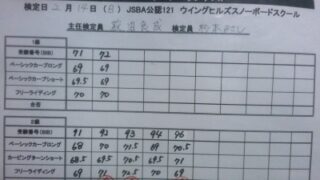 検定日 2月14日(日) JSBA公認121 ウイングヒルズスノーボードスクール
主任検定員 検定員
1級
受験番号(BIB) 71 72
ベーシックカーブロング 69 69
ベーシックカーブショート 69.5 69
フリーライディング 70 70
合否
2級
受験番号(BIB) 91 92 93 94 96
ベーシックカーブロング 68 70 71.5 69 70.5
カービングターンショート 68.5 69.5 70.5 69.5 71
フリーライディング 69 71 72.5 70 69